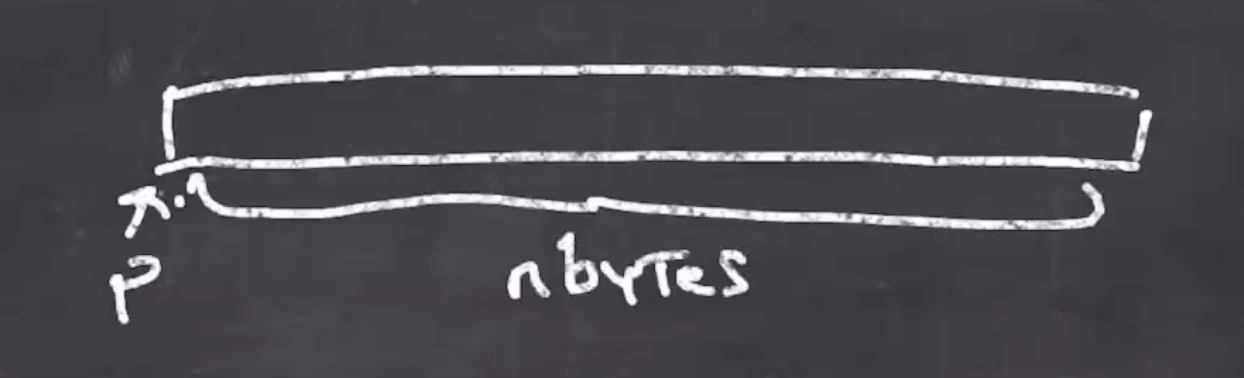 p
nbytes